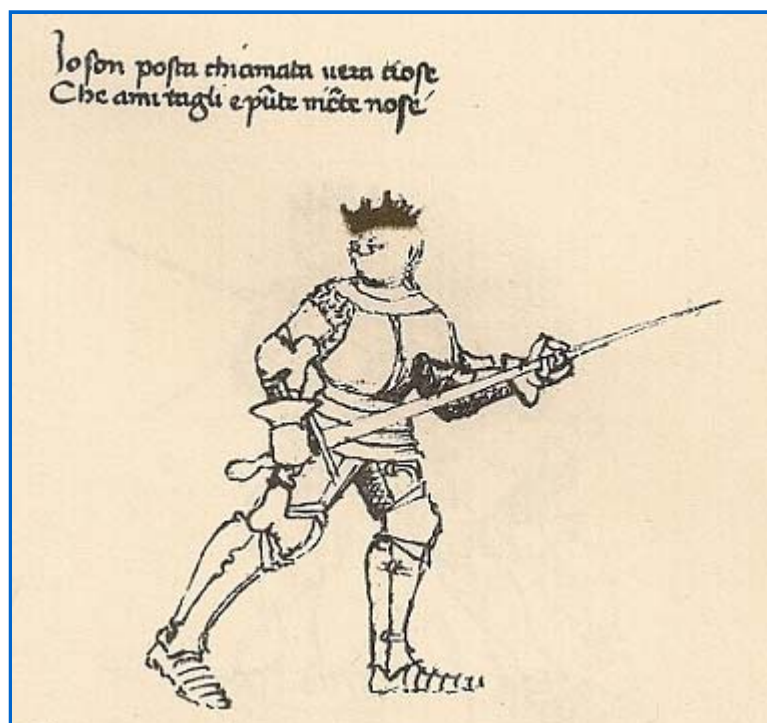 Io son posta chiamata uera crose
Che ami tagli e pūte niēte nose